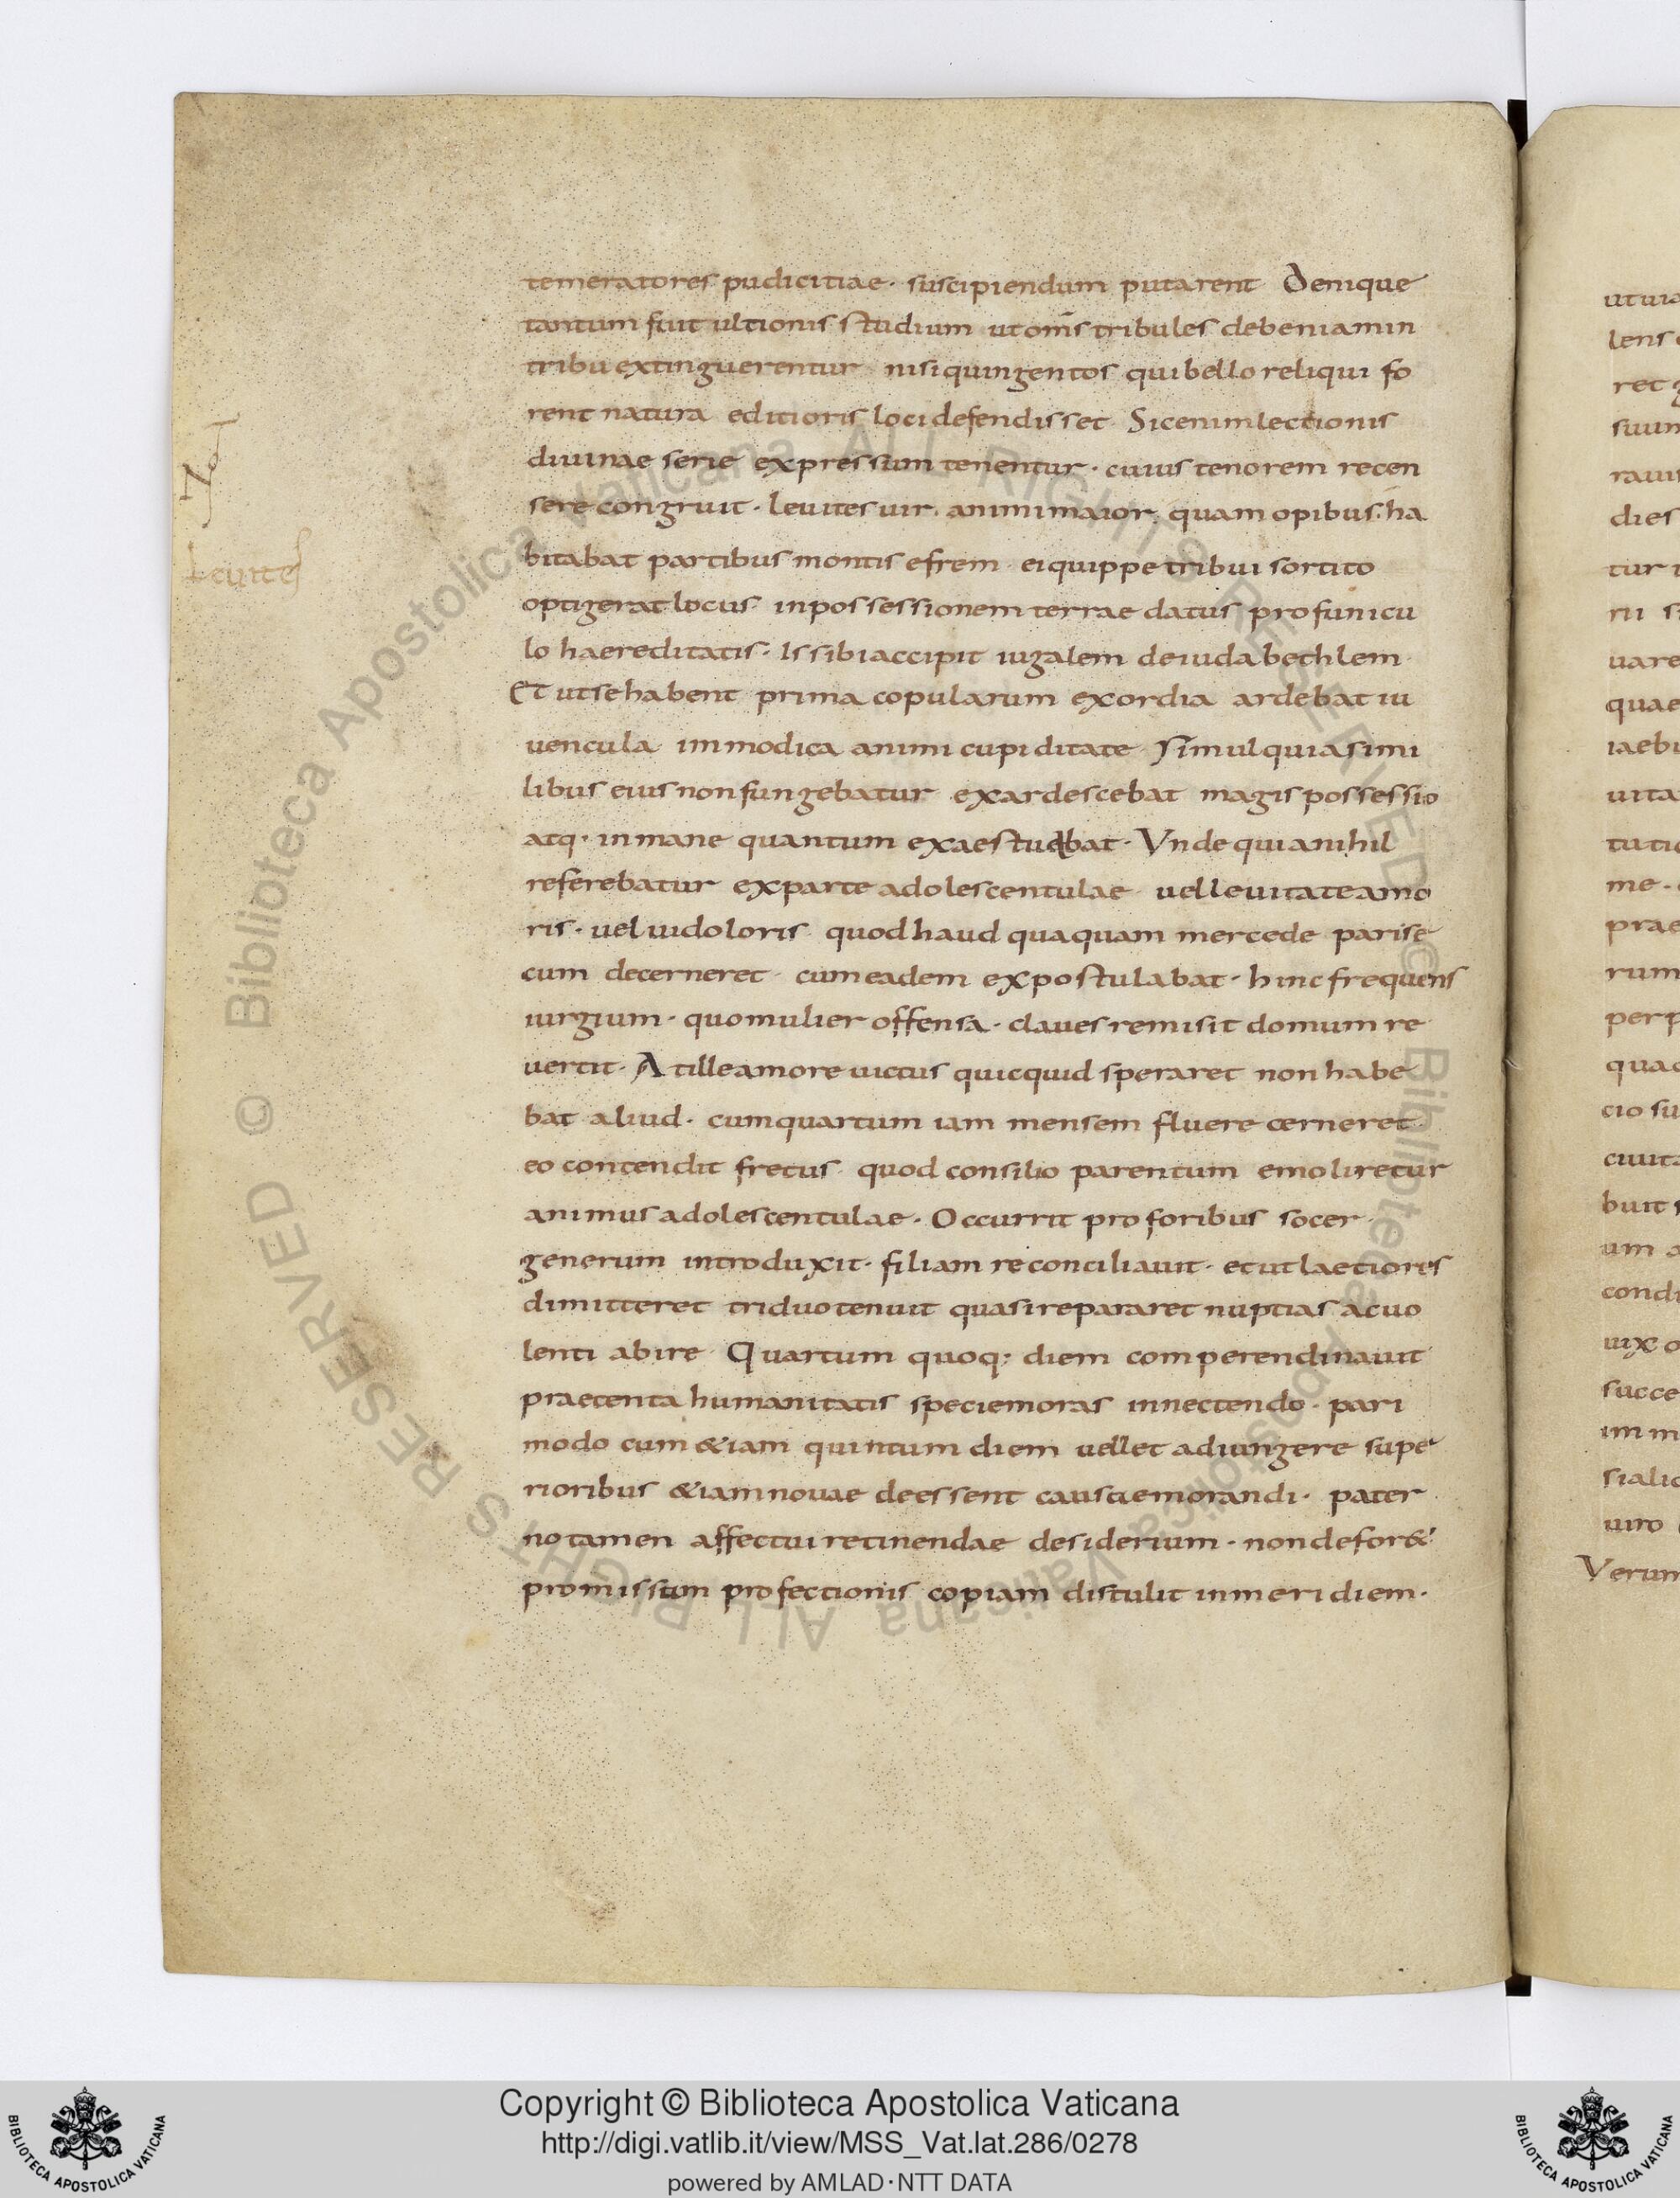 temeratores pudicitiae · suscipiendum putarent Denique
tantum fuit ultionis studium ut om̄s tribules debeniamin
tribu extinguerentur nisi quingentos qui bello reliqui fo
rent natura editioris loci defendisset · Sic enim lectionis
divinae serie expressum tenentur · cuius tenorem recen
sere congruit · levites uir · animi maior · quam opibus · ha
bitabat partibus montis efrem · ei quippe tribui sortito
optigerat locus · in possessionem terrae datus pro funicu
lo haereditatis · Is sibi accipit iugalem de iuda bethlem ·
Et ut se habent prima copularum exordia ardebat iu
uencula immodica animi cupiditate Simul quia simi
libus eius non fungebatur exardescebat magis possessio
atq · inmane quantum exaestuebat · Vnde quia nihil
referebatur ex parte adolescentulae uel leuitate amo
ris · uel ui doloris quod haud quaquam mercede pari se
cum decerneret · cum eadem expostulabat · hinc frequens
iurgium · quo mulier offensa · claues remisit domum re
uertit · At ille amore uictus quicquid speraret non habe
bat aliud · cum quartum iam mensem fluere cerneret ·
eo contendit fretus quod consilio parentum emoliretur
animus adolescentulae · Occurrit pro foribus socer ·
generum introduxit · filiam reconciliauit · et ut laetiores
dimitteret triduo tenuit quasi repararet nuptias ac uo
lenti abire Quartum quoq; diem comperendinauit
praetenta humanitatis specie moras innectendo · pari
modo cum &iam quintum diem uellet adiungere supe
rioribus &iam nouae deessent causae morandi · pater
no tamen affectui retinendae desiderium · non defor&
promissum profectionis copiam distulit in meridiem ·
Not
Leuites
lens
suum
dies
quae
me ·
rum
Verum
Copyright © Biblioteca Apostolica Vaticana
http://digi.vatlib.it/view/MSS_Vat.lat.286/0278
powered by AMLAD · NTT DATA
BIBLIOTECA APOSTOLICA VATICANA
BIBLIOTECA APOSTOLICA VATICANA
© Biblioteca Apostolica Vaticana ALL RIGHTS RESERVED © Biblioteca Apostolica Vaticana ALL RIGHTS RESERVED